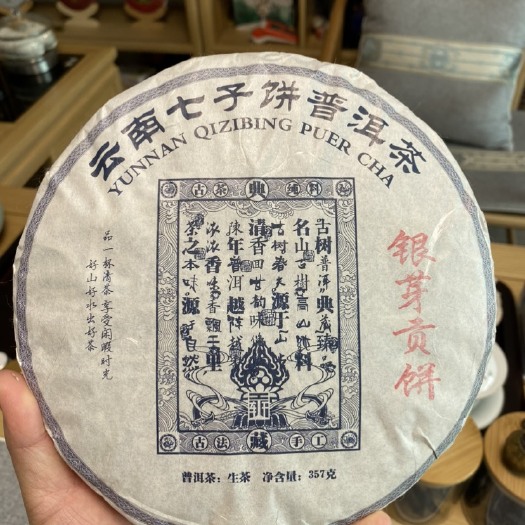 云南七子饼普洱茶
YUNNAN QIZIBING PUER CHA
古茶典纯料
古树普洱典藏臻
名山古樹高山纯料
古树春天源于山
清香回甘韵味
陳年普洱越陈越
浓浓香生香飄千里
茶之本味源于自然
古法藏手工
银芽贡饼
品一杯清茶 享受闲暇时光
好山好水出好茶
普洱茶：生茶 净含量：357克